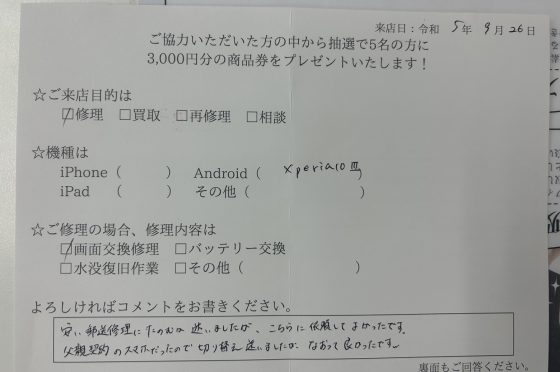 来店日:令和 5年 9月26日
ご協力いただいた方の中から抽選で5名の方に
3,000円分の商品券をプレゼントいたします!
☆ご来店目的は
☑修理 □買取 □再修理 □相談
☆機種は
iPhone( ) Android( Xperia10Ⅲ )
iPad ( ) その他( )
☆ご修理の場合、修理内容は
☑画面交換修理 □バッテリー交換
□水没復旧作業 □その他( )
よろしければコメントをお書きください。
安い郵送修理にたのむか迷いましたが、こちらに依頼してよかったです。
父親契約のスマホだったので切り替え迷いましたが なおって良かったです。
裏面もご回答ください。